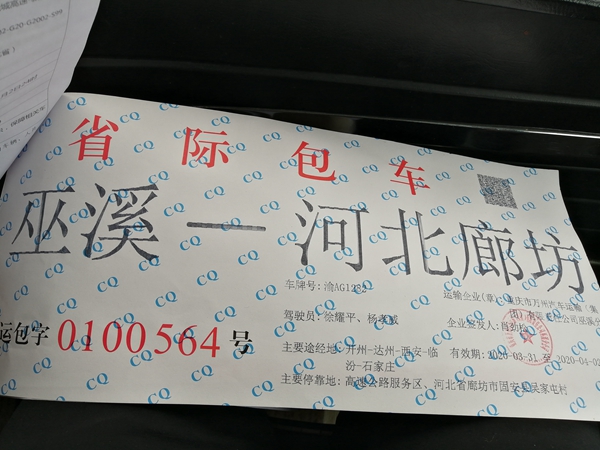 省际包车
巫溪—河北廊坊
车牌号: 渝AG1285
运输企业(章): 重庆市万州汽车运输(集
驾驶员: 徐耀平、杨孝威
企业签发人: 肖劲松
运包字 0100564 号
主要途经地: 开州-达州-西安-临
汾-石家庄
有效期: 2020-03-31 至 2020-04-02
主要停靠地: 高速公路服务区、河北省廊坊市固安县吴家屯村
CQ